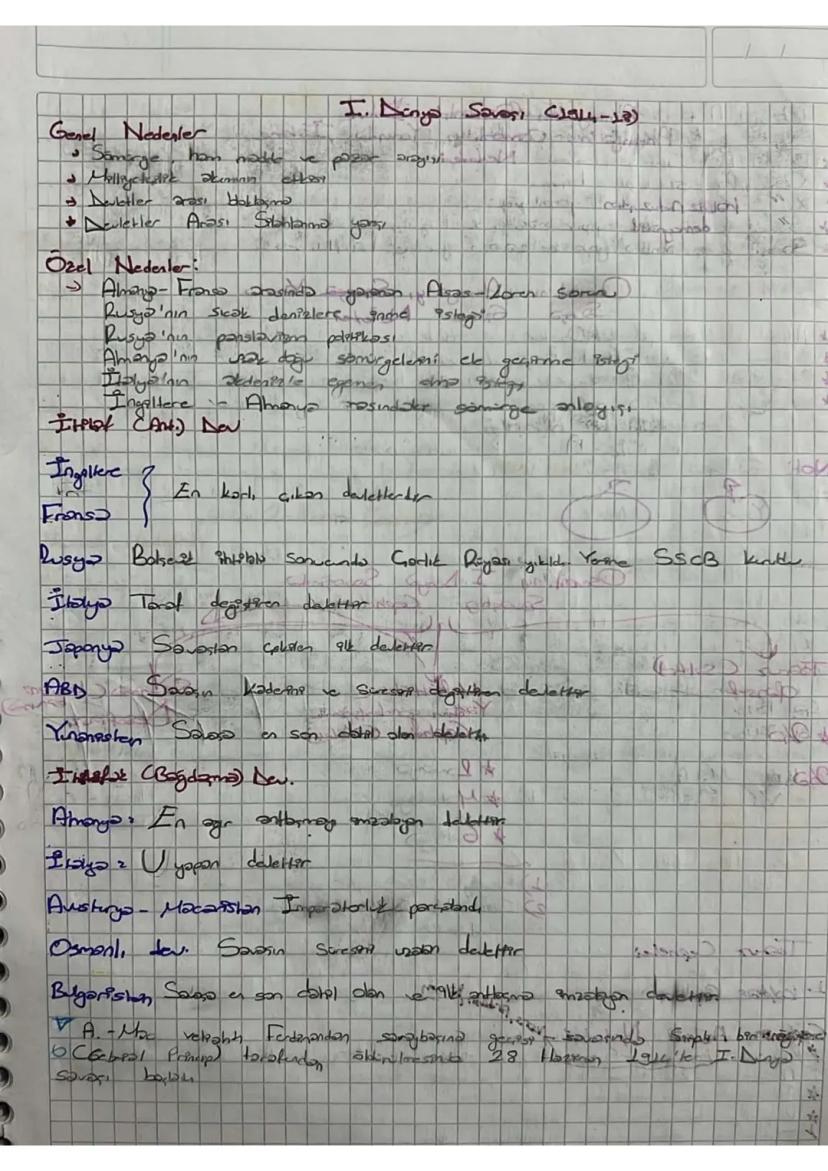 I. Dünya Savaşı (1914-18)
Genel Nedenler
Sömürge, ham madde ve pazar arayışı
Milliyetçilik akımının etkisi
→ Devletler arası bloklaşma
Devletler Arası Silahlanma yarışı
Özel Nedenler:
→ Almanya-Fransa arasında yaşanan Alsas-Loren sorunu
Rusya'nın sıcak denizlere inme isteği
Rusya'nın panslavizm politikası
Almanya'nın uzak doğu sömürgelerini ele geçirme isteği
İtalya'nın akdenizle egemen olma isteği
İngiltere - Almanya arasındaki sömürge anlayışı
İtilaf (Ant.) Dev
İngiltere
Fransa
En karlı çıkan devletlerdir
Rusya Bolşevik ihtilali sonucunda Çarlık Rusyası yıkıldı. Yerine SSCB kuruldu
İtalya Taraf değiştiren devlettir
Japonya Savaştan çekilen ilk devlettir
ABD Savaşın kaderini ve süresini değiştiren devlettir
Yunanistan Savaşa en son dahil olan devlettir
İttifak (Bağlaşma) Dev.
Almanya: En ağır antlaşmayı imzalayan devlettir
İtalya: U yapan devlettir
Avusturya-Macaristan İmparatorluk parçalandı
Osmanlı dev. Savaşın süresini uzatan devlettir
Bulgaristan Savaşa en son dahil olan ve ilk antlaşma imzalayan devlettir
A.-Mac veliahtı Ferdinandın Saraybosna gezisi sırasında Sırplı bir
(Gabriel Princip) tarafından öldürülmesinle 28 Haziran 1914'te I. Dünya
savaşı başladı